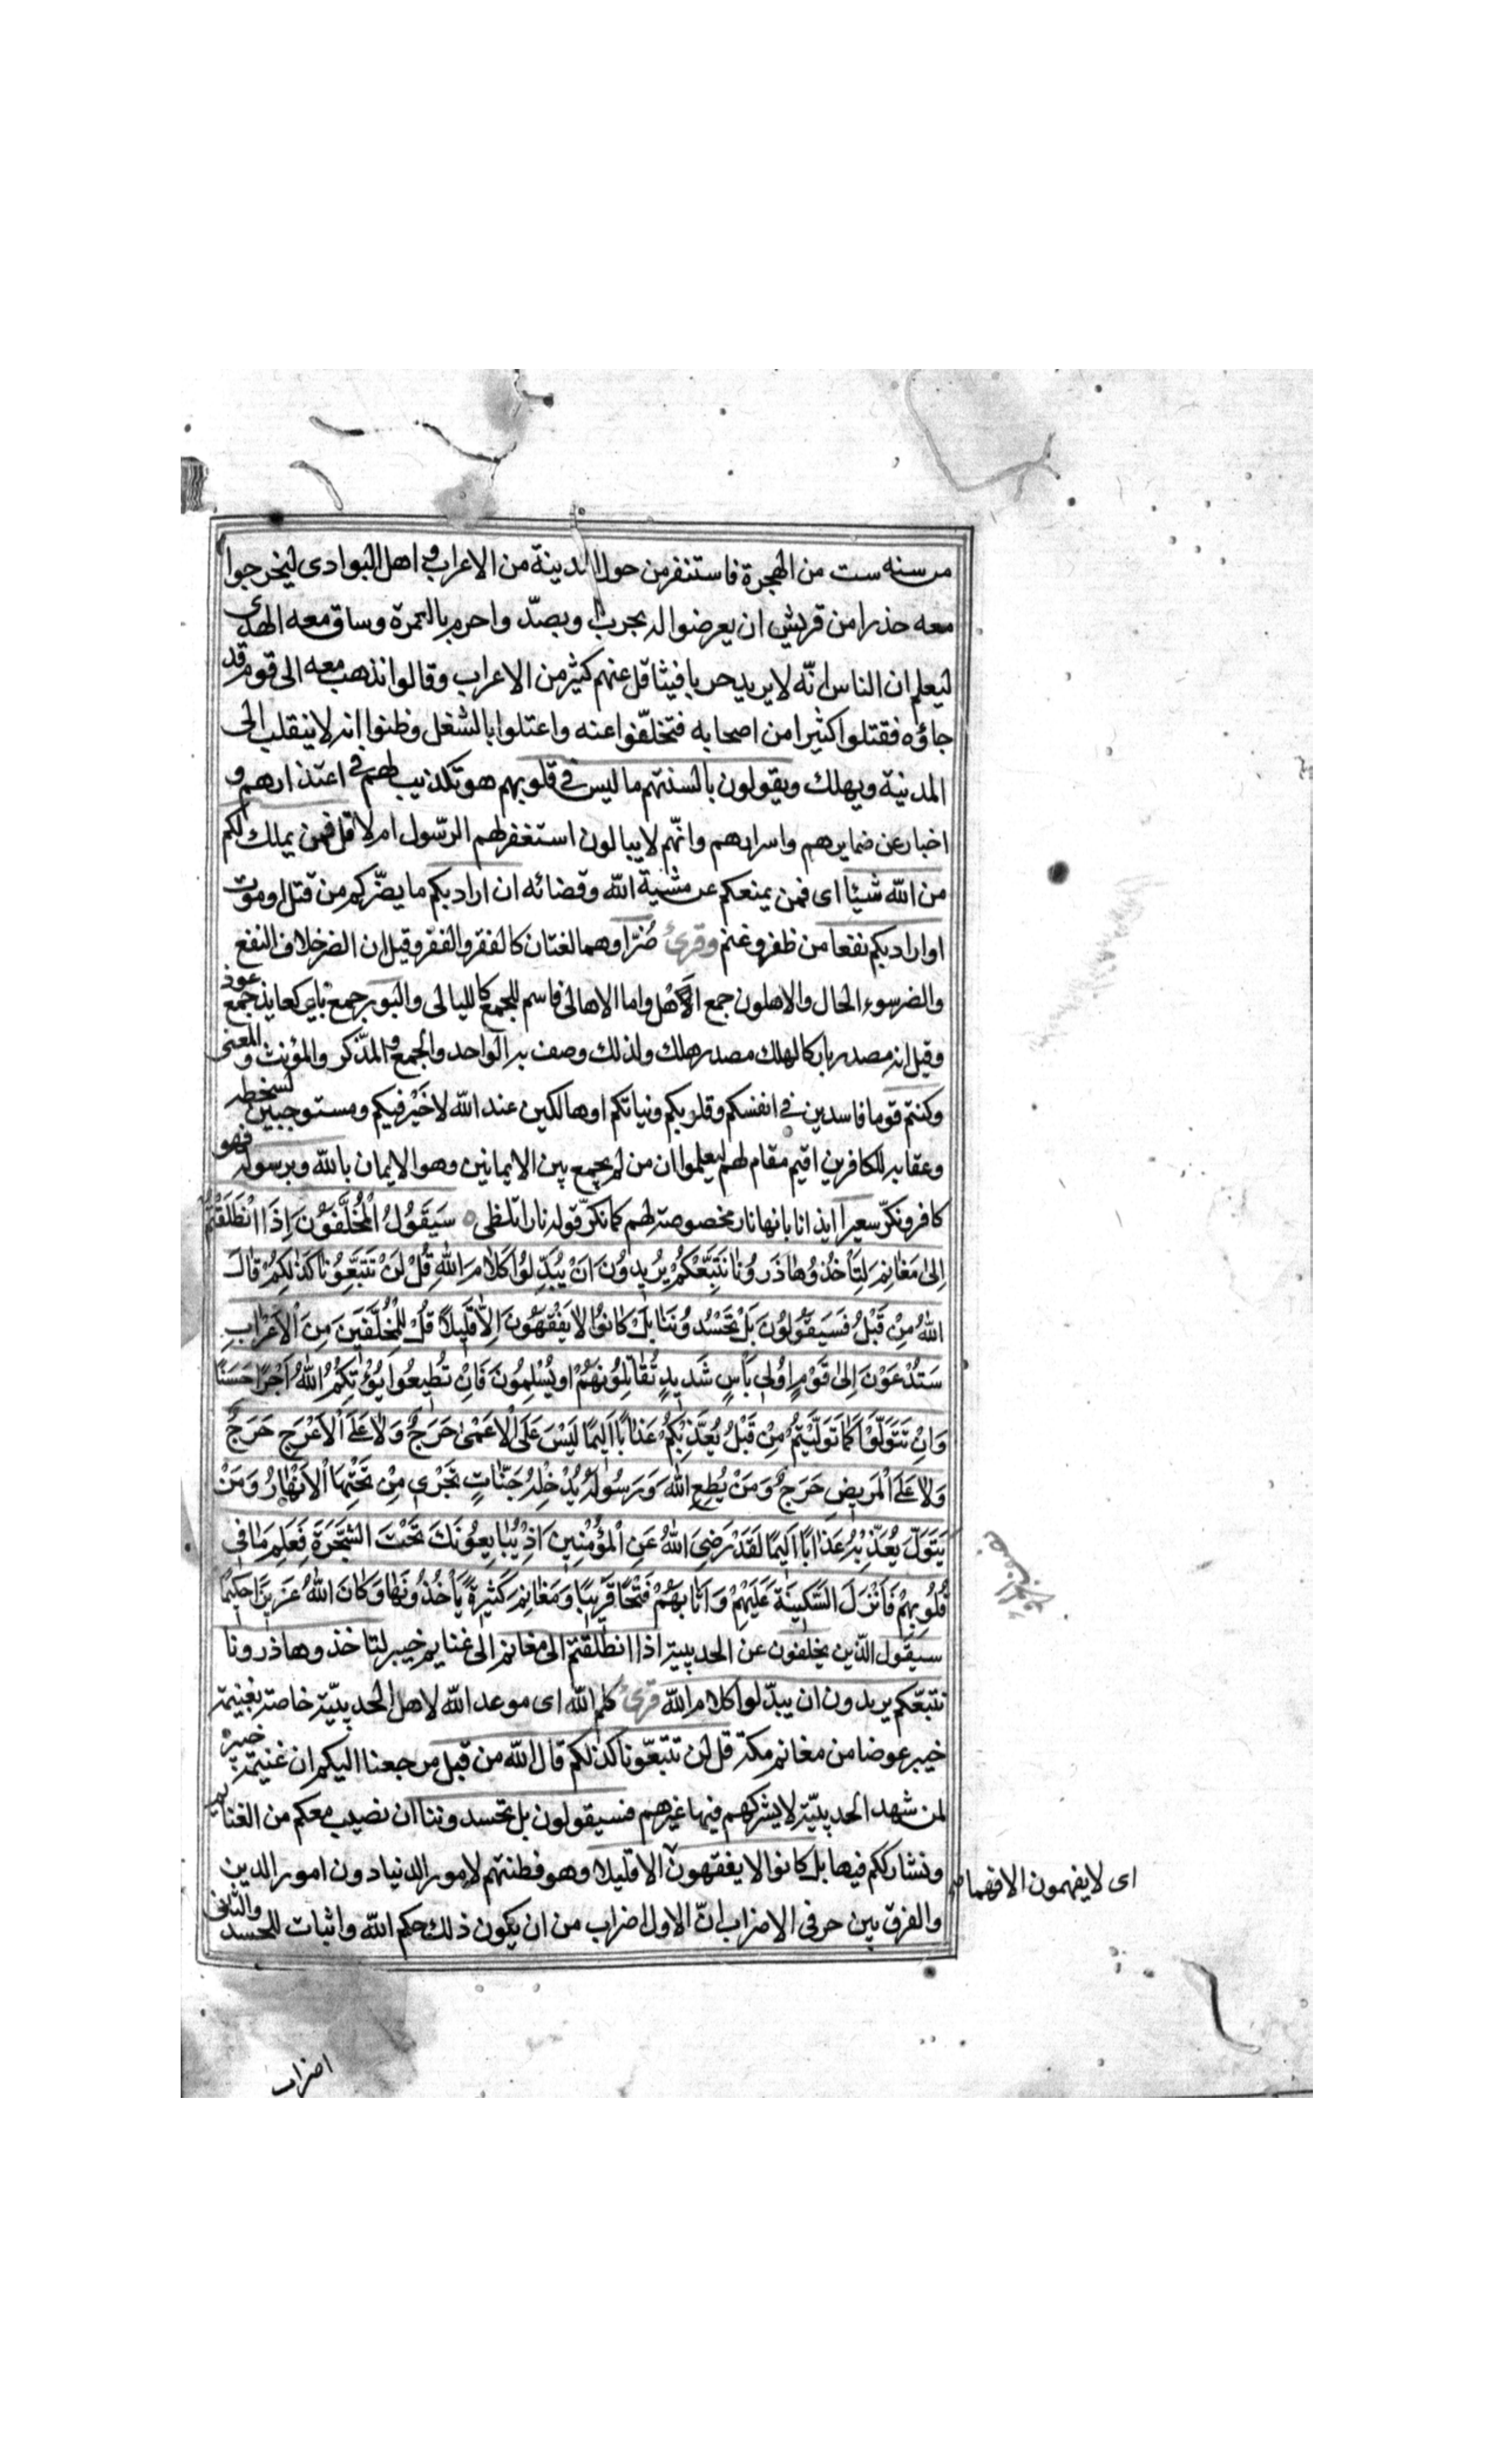 من سنه ست من الهجرة فاستنفر من حول المدينة من الاعراب و اهل البوادى ليخرجوا
معه حذرا من قريش ان يعرضوا له بحرب وبصدّ واحرم بالعمرة وساق معه الهدى
ليعلم ان الناس انّه لا يريد حربا فيثاقل عنهم كثير من الاعراب وقالوا نذهب معه الى قوم قد
جاؤه فقتلوا كثيرا من اصحابه فتخلّفوا عنه واعتلوا بالشغل وظنوا انه لا ينقلب الى
المدنية ويهلك ويقولون بالسنتهم ما ليس فى قلوبهم هو تكذيب لهم فى اعتذارهم و
اخبار عن ضمايرهم واسرارهم وانّهم لا يبالون استغفر لهم الرّسول ام لا قل فمن يملك لكم
من الله شيئا اى فمن يمنعكم عن مشية الله وقضائه ان اراد بكم ما يضرّكم من قتل او موت
او اراد بكم نفعا من ظفر وغنم وقرئ ضُرّا وهما لغتان كالفقر والفقر وقيل ان الضر خلاف النفع
والضر سوء الحال والاهلون جمع الاهل واما الاهالى فاسم للجمع كالليالى والبور جمع باير كعايذ جمع عوذ
وقيل انه مصدر بار كالهلك مصدر هلك ولذلك وصف به الواحد والجمع و المذّكر والمؤنث والمعنى
وكنتم قوما فاسدين فى انفسكم وقلوبكم ونياتكم او هالكين عند الله لا خَيْر فيكم ومستوجبين لسخطه
وعقابه للكافرين اقيم مقام لهم ليعلموا ان من لم يجمع بين الايمانين وهو الايمان بالله وبرسوله فهو
كافر ونكّر سعيرا ايذانا بانها نار مخصوصة لهم كما نكّر قوله نارا تلظى ه سَيَقُولُ اْلمُخَلَّفُونَ اِذَا انْطَلَقْتُمْ
اِلىٰ مَغَانِمَ لِتَأْخُذُوهَا ذَرُونَا نَتَّبِعْكُمْ يُرِيدُونَ اَنْ يُبَدِّلُوا كَلَامَ اللهِ قُلْ لَنْ تَتَّبِعُونَا كَذٰلِكُمْ قَالَ
اللهُ مِنْ قَبْلُ فَسَيَقُولُونَ بَلْ تَحْسُدُونَنَا بَلْ كَانُوا لَا يَفْقَهُونَ اِلَّا قَلِيلًا قُلْ لِلْمُخَلَّفِينَ مِنَ اْلاَعْرَابِ
سَتُدْعَوْنَ اِلىٰ قَوْمٍ اُولِى بَأْسٍ شَدِيدٍ تُقَاتِلُونَهُمْ اَوْ يُسْلِمُونَ فَاِنْ تُطِيعُوا يُؤْتِكُمُ اللهُ اَجْرًا حَسَنًا
وَاِنْ تَتَوَلَّوْا كَمَا تَوَلَّيْتُمْ مِنْ قَبْلُ يُعَذِّبْكُمْ عَذَابًا اَلِيمًا لَيْسَ عَلَى اْلاَعْمىٰ حَرَجٌ وَلَا عَلَى اْلاَعْرَجِ حَرَجٌ
وَلَا عَلَى اْلمَرِيضِ حَرَجٌ وَمَنْ يُطِعِ اللهَ وَرَسُولَهُ يُدْخِلْهُ جَنَّاتٍ تَجْرِى مِنْ تَحْتِهَا اْلاَنْهَارُ وَمَنْ
يَتَوَلَّ يُعَذِّبْهُ عَذَابًا اَلِيمًا لَقَدْ رَضِىَ اللهُ عَنِ اْلمُؤْمِنِينَ اِذْ يُبَايِعُونَكَ تَحْتَ الشَّجَرَةِ فَعَلِمَ مَا فِى
قُلُوبِهِمْ فَاَنْزَلَ السَّكِينَةَ عَلَيْهِمْ وَاَثَابَهُمْ فَتْحًا قَرِيبًا وَمَغَانِمَ كَثِيرَةً يَأْخُذُونَهَا وَكَانَ اللهُ عَزِيزًا حَكِيمًا
سيقول الذّين يخلفون عن الحديبية اذا انطلقتم الى مغانم الى غنايم خيبر لتاخذوها ذرونا
نتبعّكم يريدون ان يبدّلوا كلام الله قرئ كلم الله اى موعد الله لاهل الحديبيّة خاصة بغنيمة
خيبر عوضا من مغانم مكة قل لن تتبعّونا كذلكم قال الله من قبل مرجعنا اليكم ان غنيمة خيبر
لمن شهد الحديبيّة لا يشركهم فيها غيرهم فسيقولون بل تحسدوننا ان نصيب معكم من الغنايم
ونشارككم فيها بل كانوا لا يفقهون الا قليلا وهو فطنتهم لامور الدنيا دون امور الدين
اى لا يفهمون الا فهما
والفرق بين حرفى الاضراب انّ الاول اضراب من ان يكون ذلك حكم الله واثبات للحسد والثانى
اضراب